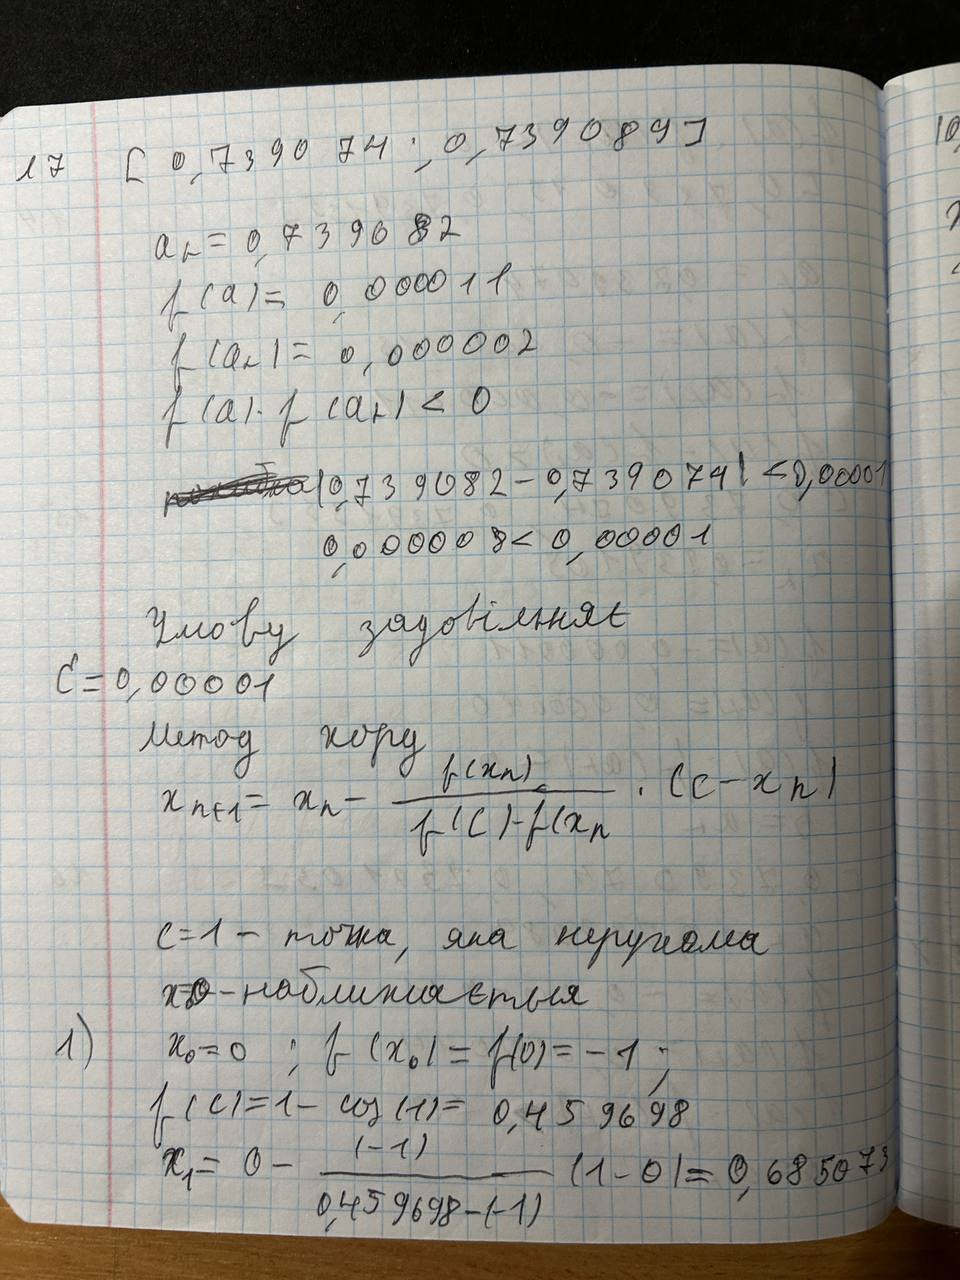 17 [0,739074; 0,739089]
aₙ = 0,739082
f(a) = 0,000011
f(aₙ) = 0,000002
f(a)·f(aₙ) < 0
|0,739082 - 0,739074| < 0,00001
0,000008 < 0,00001
Умову задовільняє
Ɛ = 0,00001
Метод хорд
xₙ₊₁ = xₙ - f(xₙ) / f(C)-f(xₙ · (c - xₙ)
c=1 - точка, яка нерухома
x=0 - наближається
1) x₀ = 0 ; f(x₀) = f(0) = -1 ;
f(c) = 1 - cos(1) = 0,459698
x₁ = 0 - (-1) / 0,459698-(-1) (1-0) = 0,685073